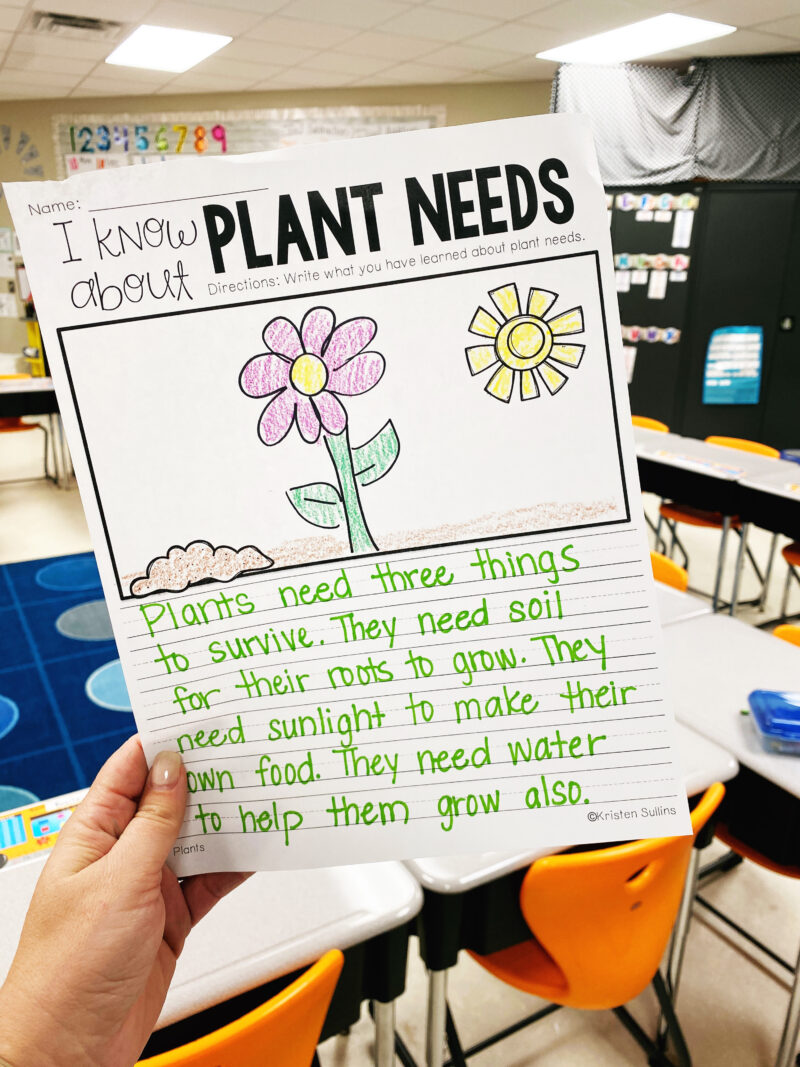 1 2 3 4 5 6 7 8 9
Name:
I know about PLANT NEEDS
Directions: Write what you have learned about plant needs.
Plants need three things
to survive. They need soil
for their roots to grow. They
need sunlight to make their
own food. They need water
to help them grow also.
Plants
©Kristen Sullins